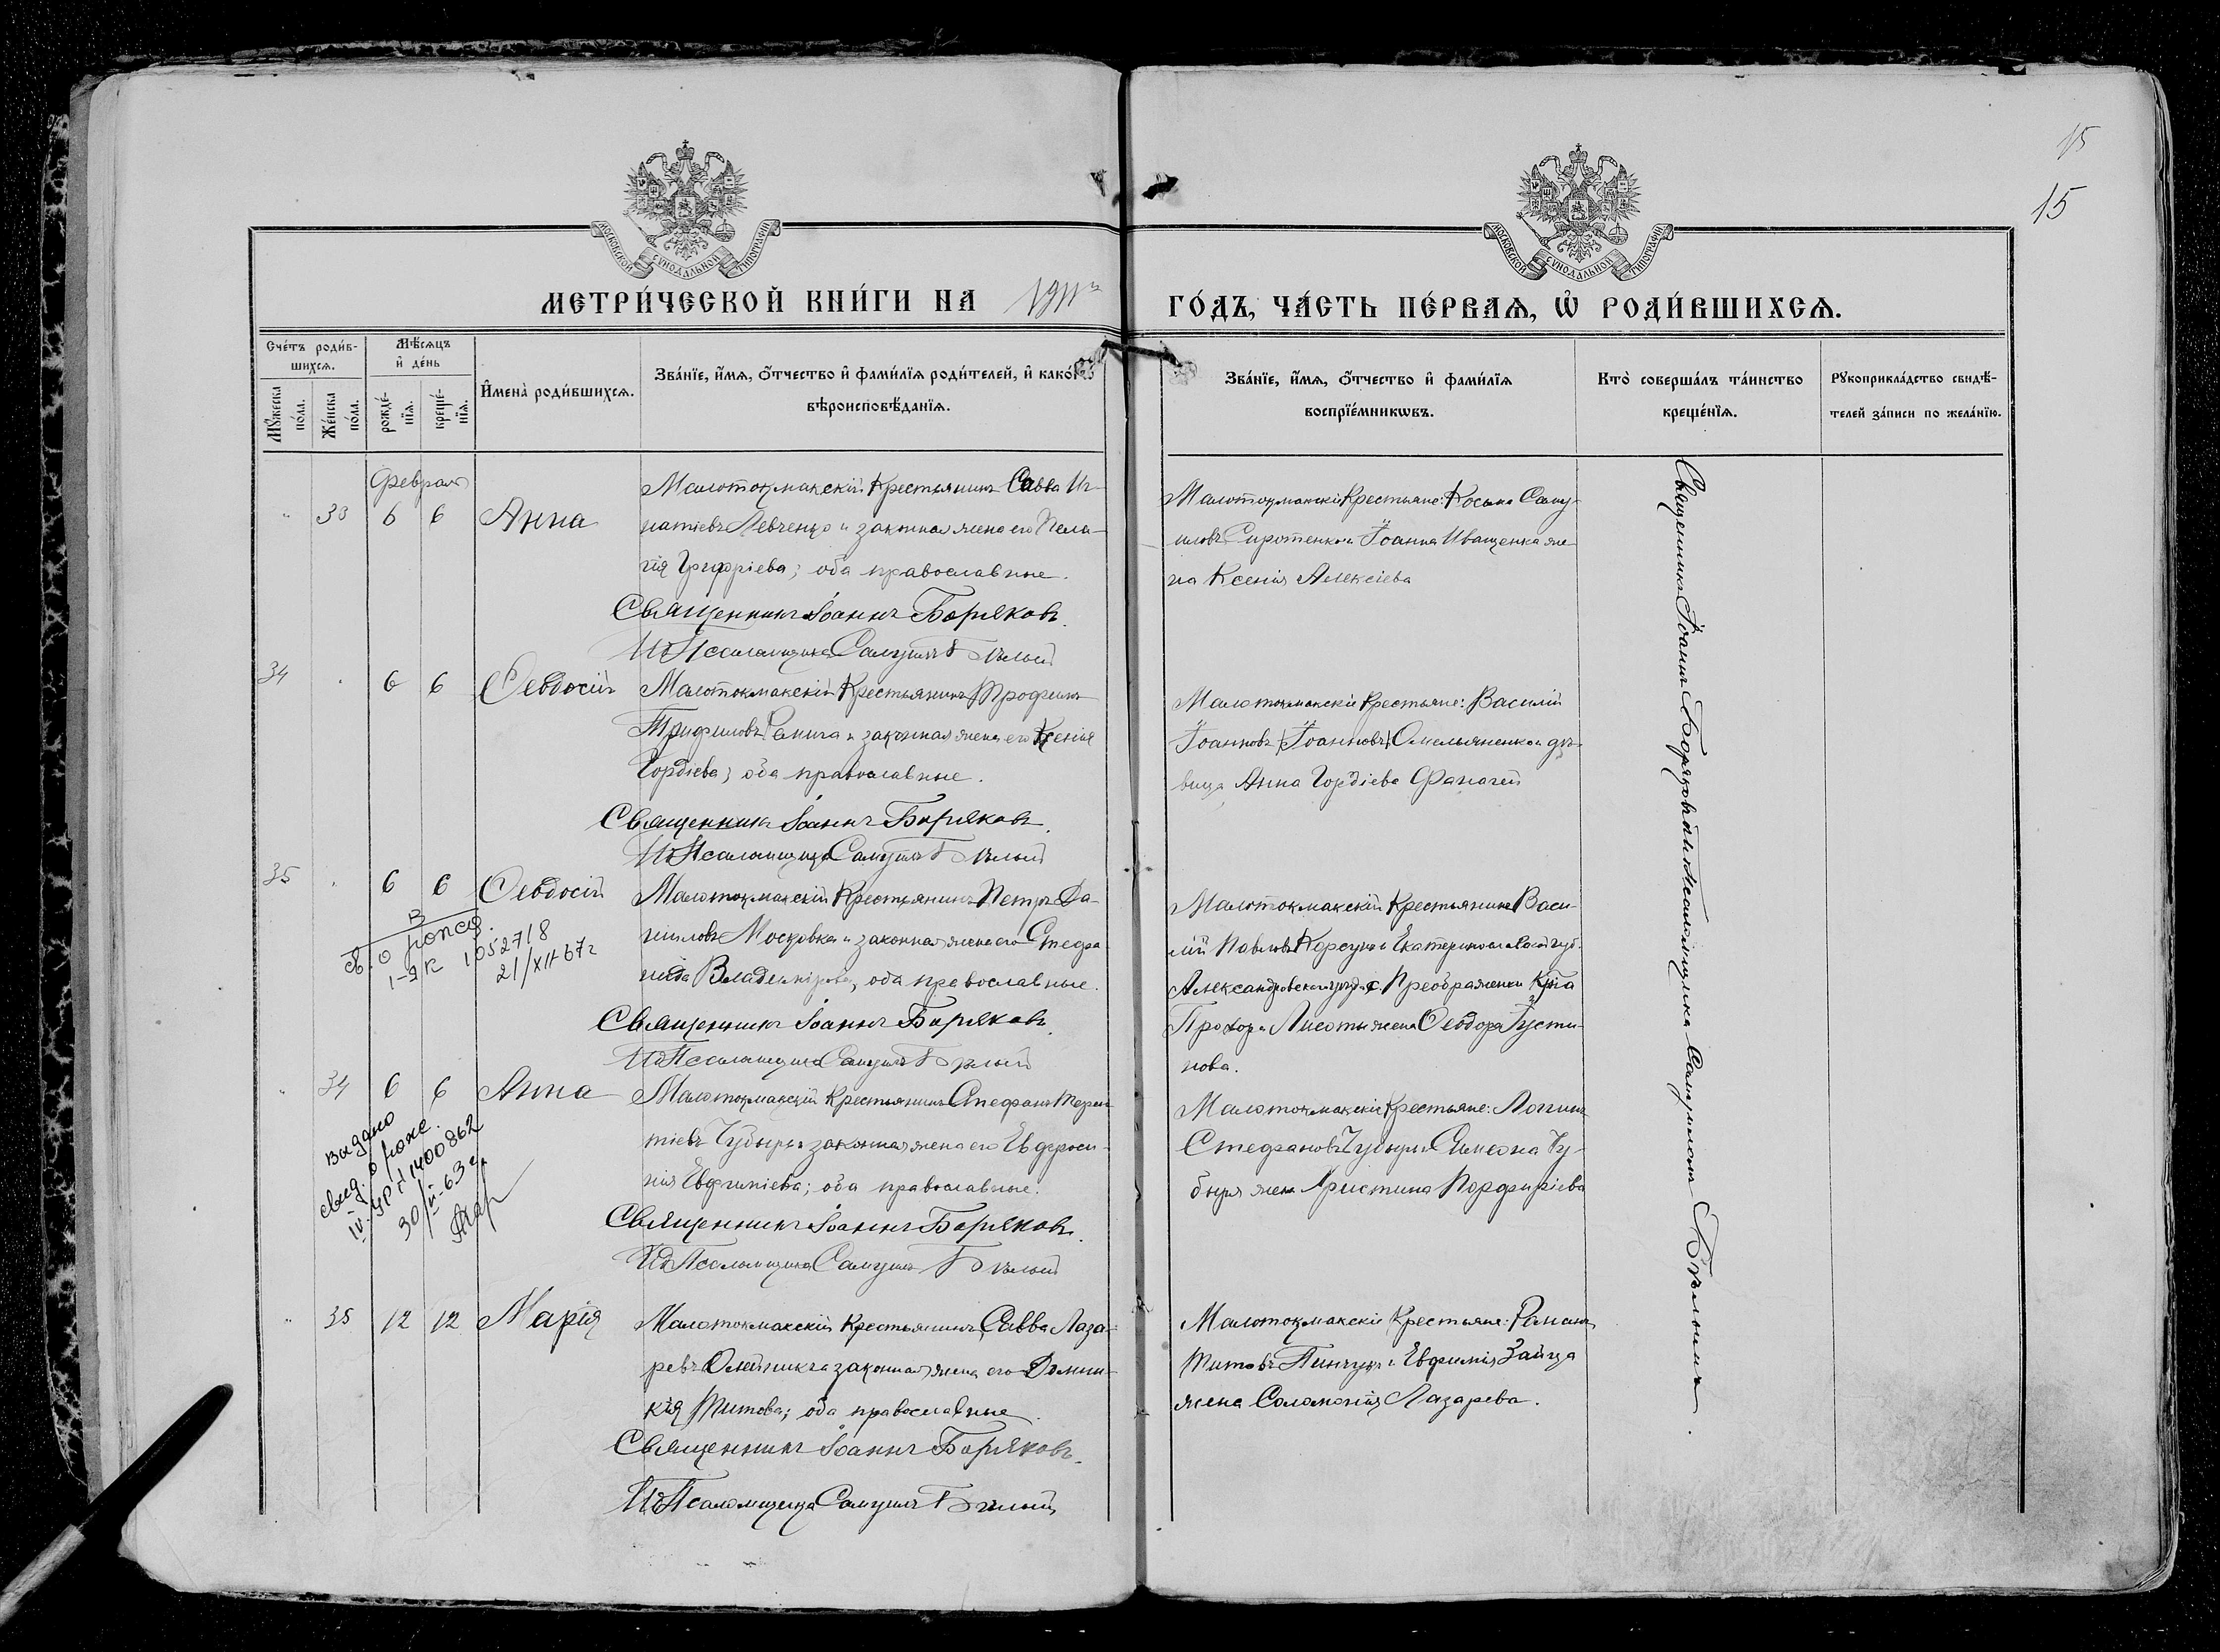 15
15
МОСКОВСКОЙ СѴНОДАЛЬНОЙ ТИПОГРАФІИ
МОСКОВСКОЙ СѴНОДАЛЬНОЙ ТИПОГРАФІИ
МЕТРИ́ЧЕСКОЙ КНИ́ГИ НА 1911
ГО́ДЪ, ЧА́СТЬ ПЕ́РВАѦ, Ѽ РОДИ́ВШИХСѦ.
Сче́тъ роди́в-
шихсѧ.
Мꙋ́жеска по́ла.
Же́нска по́ла.
Мѣ́сѧцъ
и҆ де́нь
рожде́-
нїѧ.
креще́-
нїѧ.
И҆мена̀ роди́вшихсѧ.
Зва́нїе, и҆́мѧ, ѻ҆́тчество и҆ фами́лїѧ роди́телей, и҆ како́гѡ
вѣроисповѣ́данїѧ.
Зва́нїе, и҆́мѧ, ѻ҆́тчество и҆ фами́лїѧ
воспрїе́мникѡвъ.
Кто̀ соверша́лъ та́инство
креще́нїѧ.
Рꙋкоприкла́дство свидѣ́-
телей за́писи по жела́нїю.
Февраль
" 33 6 6 Анна
Малотокмакскій Крестьянинъ Савва Иг-
натіевъ Левченко и законная жена его Пела-
гія Григоріева; оба православные.
Священникъ Іоаннъ Боряковъ.
ИдПсаломщика Самуилъ Бѣлый
Малотокмакскіе Крестьяне: Косьма Саму-
иловъ Сиротенко и Іоанна Иващенка же-
на Ксенія Алексіева
34 " 6 6 Ѳеодосій
Малотокмакскій Крестьянинъ Трофимъ
Трифиловъ и законная жена его Ксенія
Гордіева; оба православные.
Священникъ Іоаннъ Боряковъ.
ИдПсаломщика Самуилъ Бѣлый
Малотокмакскіе Крестьяне: Василій
Іоанновъ (Іоанновъ) Омельяненко и дѣ-
вица Анна Гордіева
35 " 6 6 Ѳеодосій
Малотокмакскій Крестьянинъ Петръ Да-
ниловъ Московка и законная жена его Стефа
нида Владимірова, оба православные.
Священникъ Іоаннъ Боряковъ.
ИдПсаломщика Самуилъ Бѣлый
Малотокмакскій Крестьянинъ Васи-
лій Павловъ Корсунъ и Екатеринославской губ.
Александровскаго уѣзда с. Преображенки Кр-на
Прохора жена Ѳеодора Іусти-
нова.
1-ЯК 1052718
21/XII 67г
" 34 6 6 Анна
Малотокмакскій Крестьянинъ Стефанъ Терен
тіевъ Губыря и законная жена его Евфроси-
нія Евфиміева; оба православные.
Священникъ Іоаннъ Боряковъ.
ИдПсаломщика Самуилъ Бѣлый
Малотокмакскіе Крестьяне: Логинъ
Стефановъ Губыря и Симеона Гу-
быря жена Христина Порфиріева
видано
свид. о рожд.
1400862
30/II-63 г.
" 35 12 12 Марія
Малотокмакскій Крестьянинъ Савва Лаза-
ревъ Олейникъ и законная жена его Домни-
кія Титова; оба православные.
Священникъ Іоаннъ Боряковъ.
ИдПсаломщика Самуилъ Бѣлый
Малотокмакскіе Крестьяне: Романъ
Титовъ Пинчукъ и Евфимія Зайца
жена Соломонія Лазарева.
Священникъ Іоаннъ Боряковъ и Псаломщика Самуилъ Бѣлый.